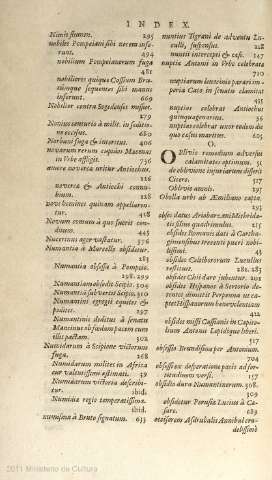 INDEX
Nimis flumen. 295
nobiles Pompeiani sibi necem inferunt. 494
nobilium Pompeianorum fuga
481
nobiliores quique Cassium Brutumque sequentes sibi manus
inferunt. 669
Nobilior contra Segedauses mittur. 279
Nonius centurio à milit. in seditione occisus. 680
Norbani fuga & interitus. 406
novarum rerum cupidus Mæenas
in Vrbe affligit. 756
amore noverca uritur Antiochus.
126
noverca & Antiochi connubium. 128
novi homines quinam appellarentur. 218
Novum comum à quo sucrit conditum. 445
Nucerinus ager vastatur. 376
Numantia à Marcello obsidetur.
283
Numantia obsessa à Pompeio.
298. 299
Numantiam obsidet Scipio. 304
Numantia à subvertit Scipio. 310
Numantini egregii equites &
pedites. 297
Numantinis deditus à senatu
Mancinus ob fœdum pacem cum
illis pactam. 302
Numidarum à Scipione victorum
fuga. 268
Numidarum milites in Africa
cur validissimi æstimati. 39
Numidarum victoria describitur. ibid.
Numidia regio temperatissima.
ibid.
numismata à Bruto signatum. 633
nuntius Tigrani de adventu Luculli, suspensus. 228
nuntii intercepti & cæsi. 147
nuptiæ Antonii in Vrbe celebratæ
710
nuptiarum
Cato in senatu clamitat
435
nuptias celebrat Antiochus
quinquagenarius. 91
nuptias celebrat uxor eodem die
quo casus maritus. 605
O.
Oblivio remedium adversus
calamitates optimum. 51
de oblivione iniuriarum disserit
Cicero. 517
Oblivio annis. 197
Obolla urbs ab Æmiliano capta.
293
obses datus Ariobarzani Mithridatis filius quadrimulus. 215
obsides Romanis dati à Carthaginensibus trecenti pueri nobilissimi. 43
obsides Celtiberorum Lucullus
restituit. 282. 283
obsides Chii dare jubentur. 202
obsides Hispanos à Sertorio detentos dimittit Perpenna ut captet Hispanorum benevolentiam
422
obsides missi Cassianis in Capitolium Antonii Lepidique liberi.
obsessio Brundisina per Antonium.
704
obsessis ex desperatione pacis adferiundinem versi. 157
obsidio dura Numantinorum. 308.
309
obsiditur Perusia Lucius à Cæsare. 689
Asdrubalis Annibal crudelissimè
2011 Ministerio de Cultura